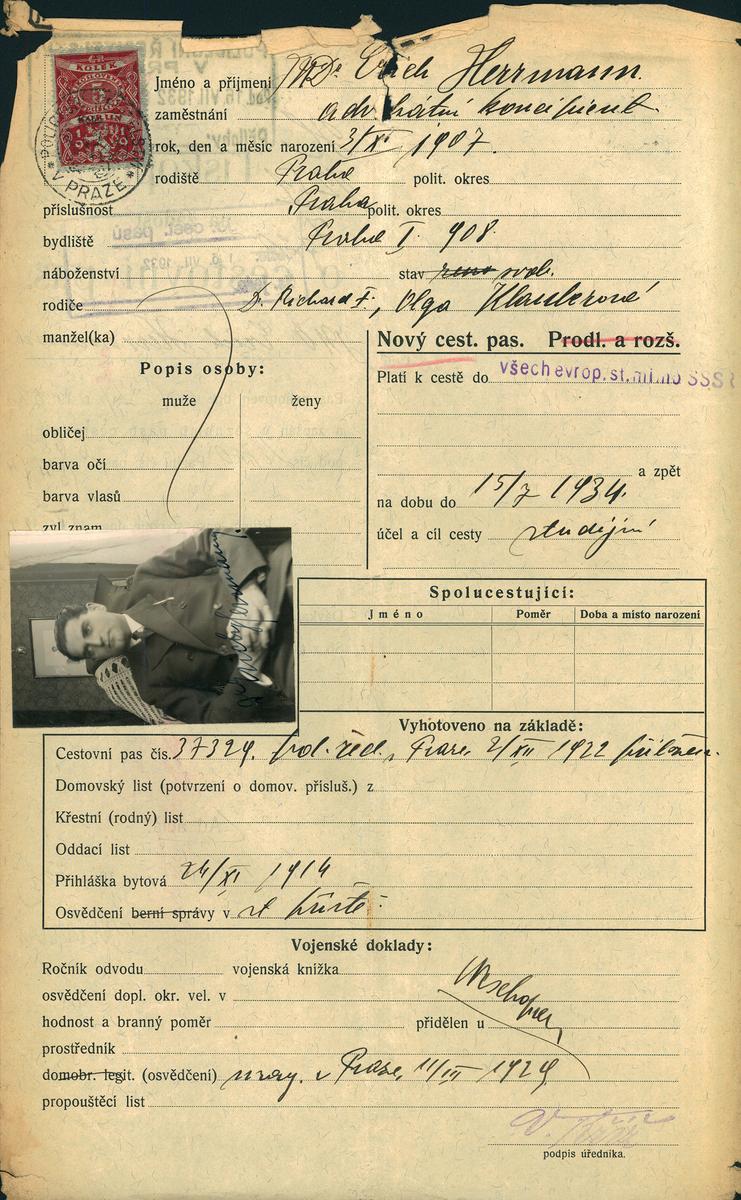 KOLEK
5
KORUN
V PRAZE
Jméno a příjmení JUDr Erich Herrmann
zaměstnání advokátní koncipient
rok, den a měsíc narození 3/XI 1907.
rodiště Praha polit. okres
příslušnost Praha polit. okres
bydliště Praha I. 908.
náboženství stav svob.
rodiče Dr. Richard F., Olga Klauberová
manžel(ka)
Nový cest. pas. Prodl. a rozš.
Popis osoby:
muže ženy
obličej
barva očí
barva vlasů
zvl znam.
Platí k cestě do všech evrop. st. mimo SSSR
a zpět
na dobu do 15/7 1934.
účel a cíl cesty studijní
Spolucestující:
Jméno Poměr Doba a místo narození
Vyhotoveno na základě:
Cestovní pas čís. 37329. pol. řed., Praze, 2/XII 1922 přiložen.
Domovský list (potvrzení o domov. přísluš.) z
Křestní (rodný) list
Oddací list
Přihláška bytová 24/XI 1914
Osvědčení berní správy v
Vojenské doklady:
Ročník odvodu vojenská knížka
osvědčení dopl. okr. vel. v
hodnost a branný poměr přidělen u
neschopen
prostředník
domobr. legit. (osvědčení) mag. v Praze, 11/III 1929
propouštěcí list
podpis úředníka.